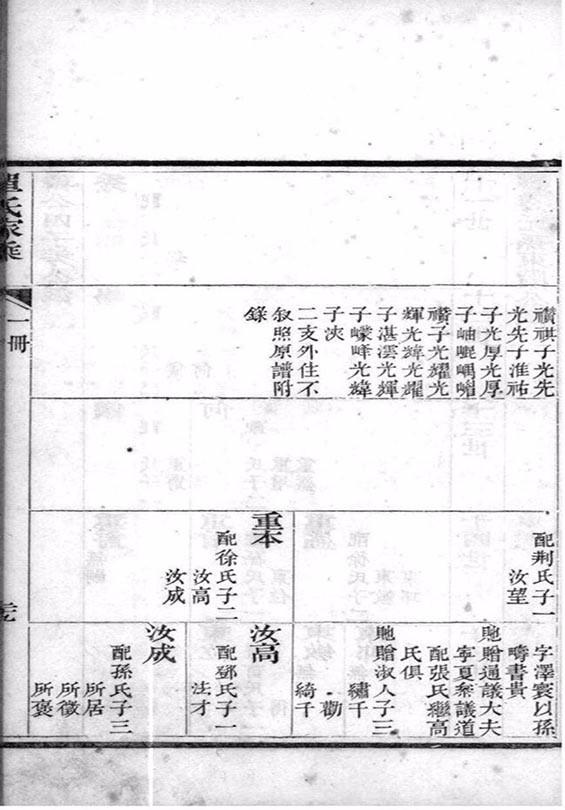 禶祺子光先
光先子淮祐
子光厚光厚
子岫崐嵎嵋
禶子光耀光
輝光緯光耀
子湛雲光輝
子嶸峰光緯
子浹
二支外住不
叙照原譜附
錄
配荆氏子一
汝望
重本
配徐氏子二
汝高
汝成
字澤寰以孫
疇書貴
貤贈通議大夫
寜夏叅議道
配張氏繼高
氏俱
貤贈淑人子三
繡千
勸
綺千
汝高
配鄧氏子一
法才
汝成
配孫氏子三
所居
所徵
所褒
氏家乘
一冊